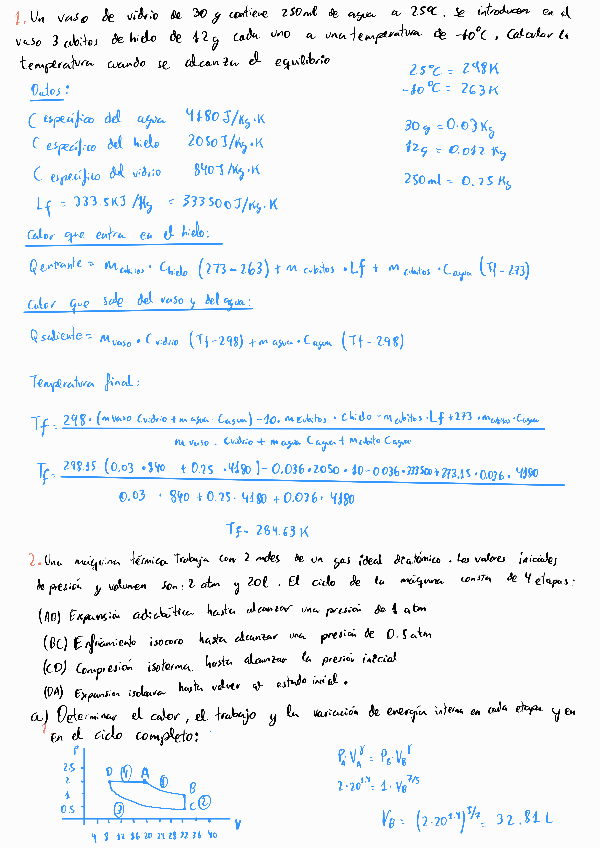 1. Un vaso de vidrio de 30 g contiene 250ml de agua a 25ºC. Se introducen en el
vaso 3 cubitos de hielo de 12g cada uno a una temperatura de -10ºC, Calcular la
temperatura cuando se alcanza el equilibrio
25ºC = 298K
-10ºC = 263K
Datos:
C específico del agua 4180 J/Kg·K
30g = 0.03Kg
C específico del hielo 2050 J/Kg·K
12g = 0.012 Kg
C específico del vidrio 840 J/Kg·K
250ml = 0.25 Kg
Lf = 333.5KJ/Kg = 333500 J/Kg·K
Calor que entra en el hielo:
Qentrante = m cubitos · C hielo (273-263) + m cubitos · Lf + m cubitos · C agua (Tf-273)
Calor que sale del vaso y del agua:
Qsaliente = m vaso · C vidrio (Tf-298) + m agua · C agua (Tf-298)
Temperatura final:
Tf = 298·(m vaso Cvidrio + m agua · Cagua) - 10· m cubitos · C hielo - m cubitos · Lf + 273 · m cubitos · Cagua
m vaso · Cvidrio + m agua Cagua + m cubito Cagua
Tf = 298.15 (0.03 · 840 + 0.25 · 4180) - 0.036 · 2050 · 10 - 0.036 · 333500 + 273.15 · 0.036 · 4180
0.03 · 840 + 0.25 · 4180 + 0.036 · 4180
Tf = 284.63 K
2. Una máquina térmica trabaja con 2 moles de un gas ideal diatómico. Los valores iniciales
de presión y volumen son: 2 atm y 20l. El ciclo de la máquina consta de 4 etapas:
(AB) Expansión adiabática hasta alcanzar una presión de 1 atm
(BC) Enfriamiento isocoro hasta alcanzar una presión de 0.5 atm
(CD) Compresión isoterma hasta alcanzar la presión inicial
(DA) Expansion isobara hasta volver al estado inicial.
a) Determinar el calor, el trabajo y la variación de energía interna en cada etapa y en
en el ciclo completo:
P
2.5
2
1
0.5
D 4 A 1
B
C 2
3
4 8 12 16 20 24 28 32 36 40
V
PA·VA^γ = PB·VB^γ
2·20^1.4 = 1·VB^7/5
VB = (2·20^1.4)^5/7 = 32.81 L